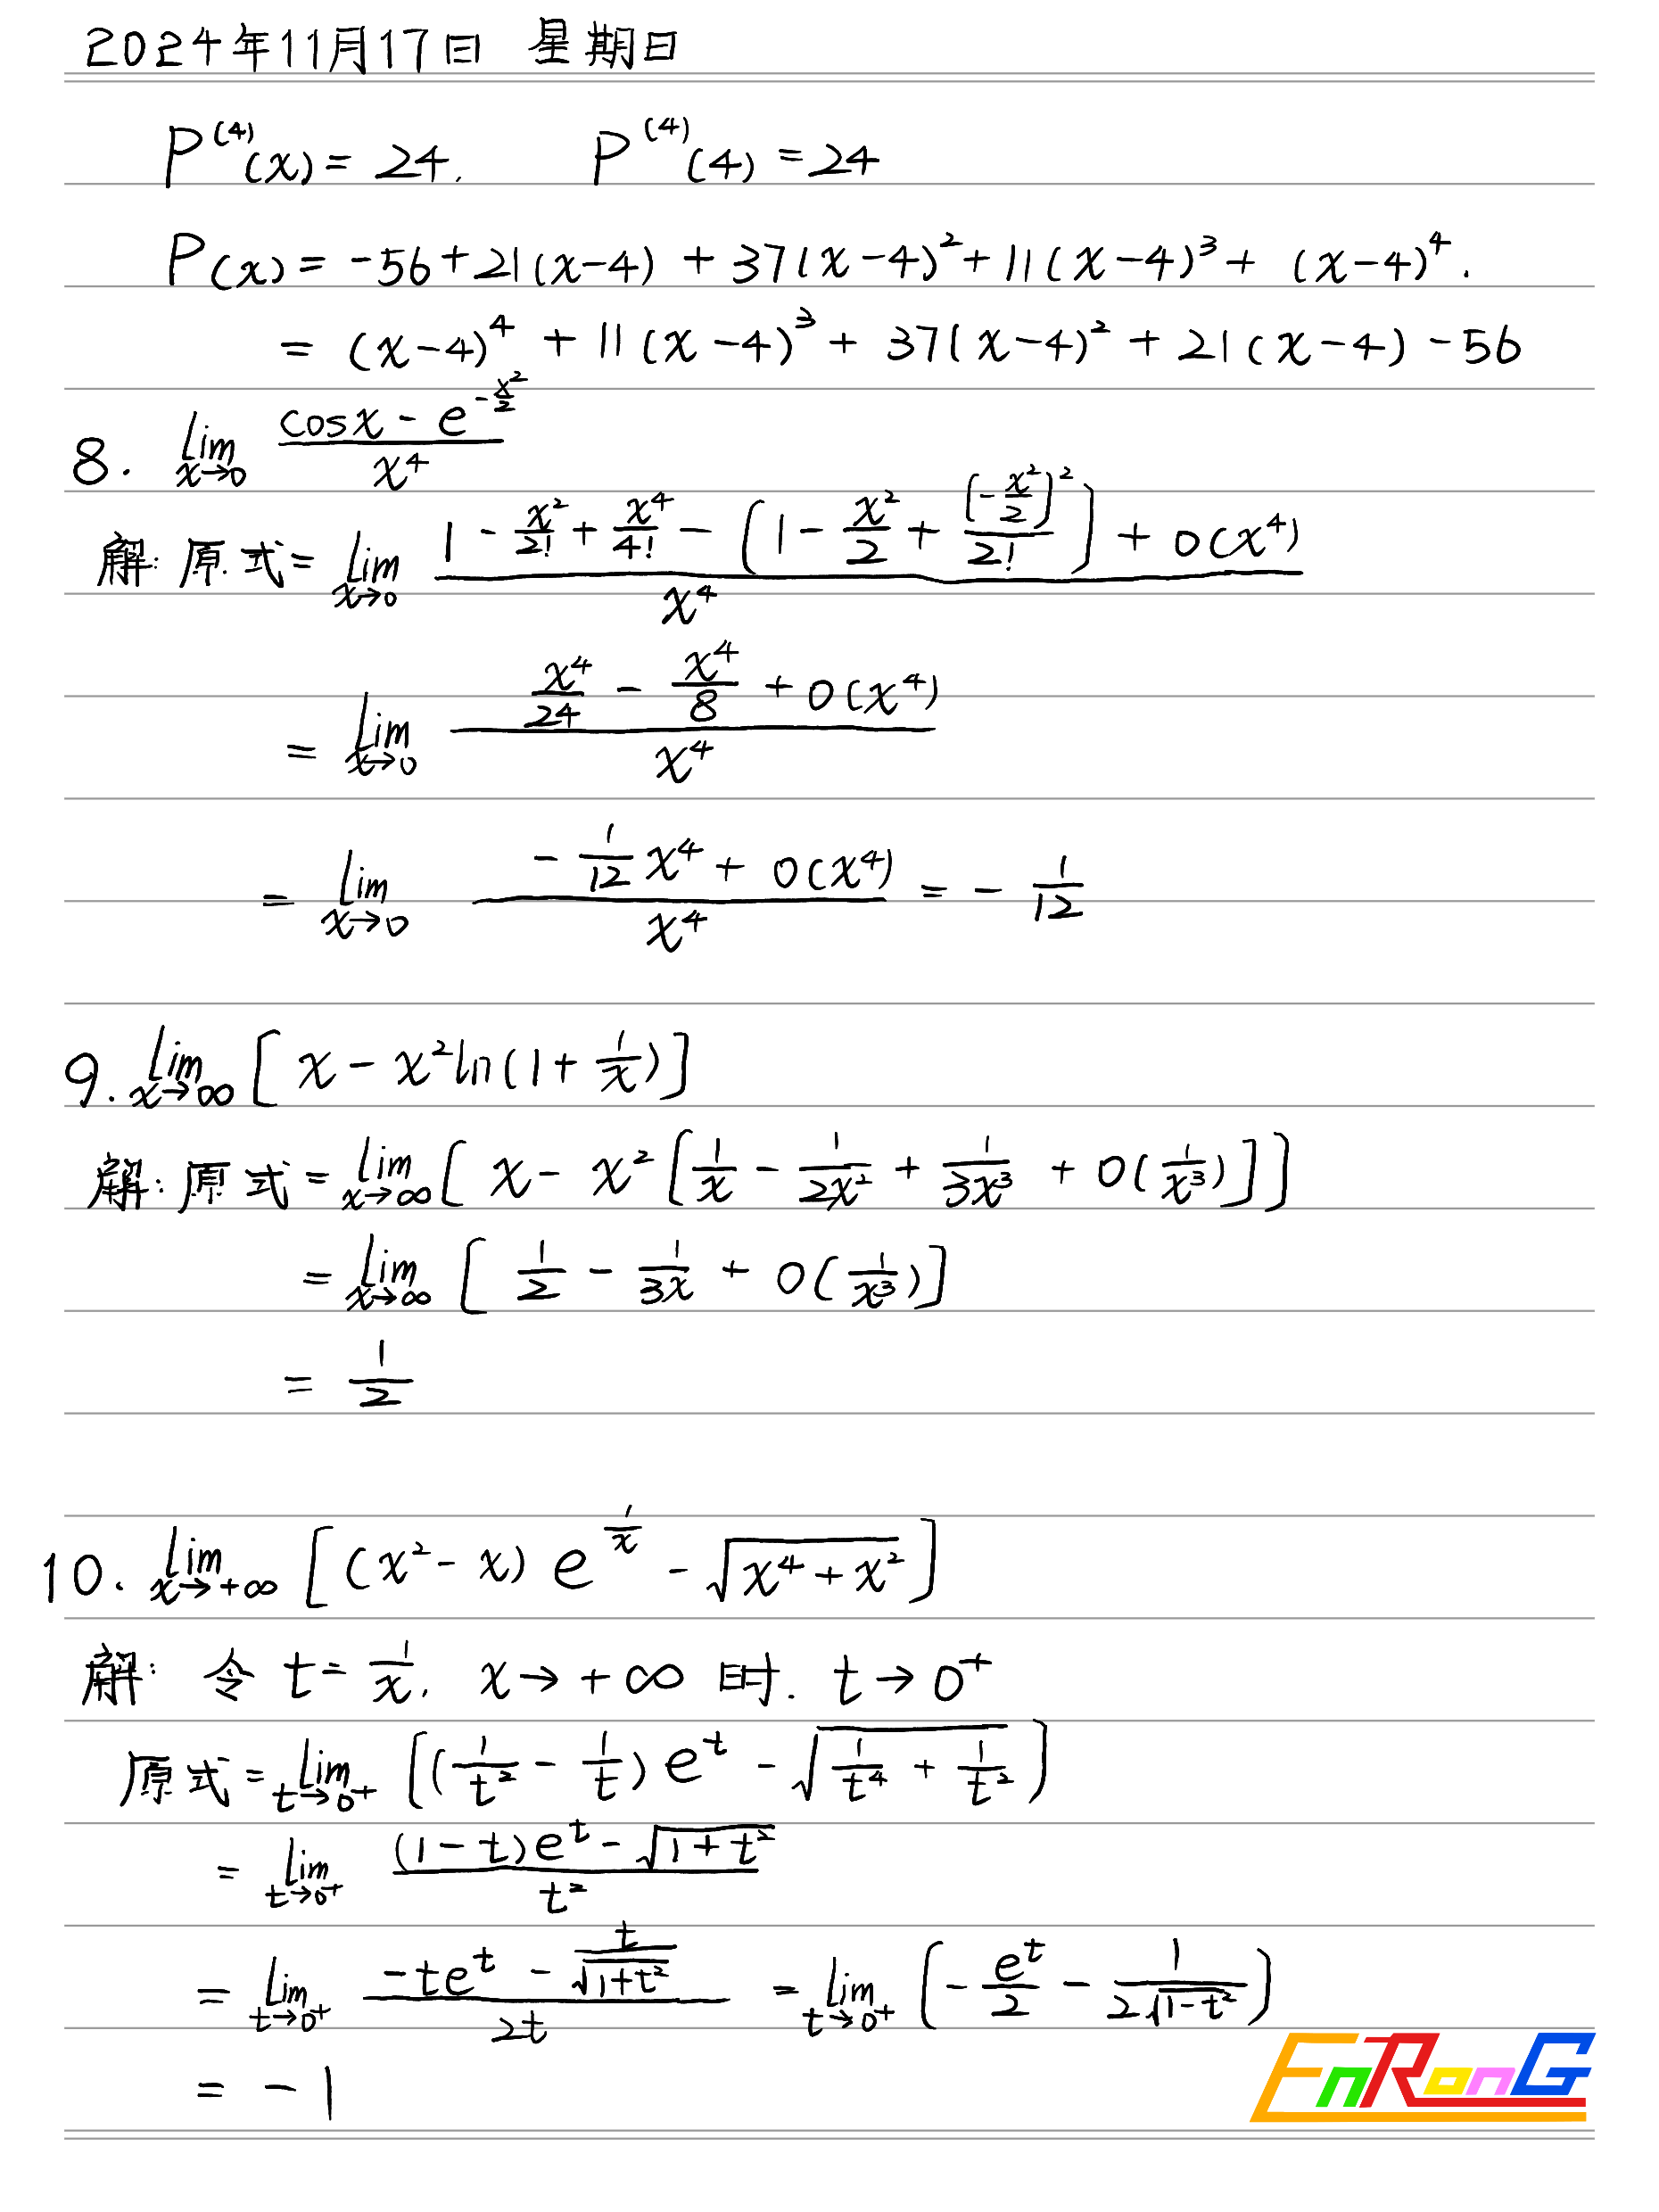 2024年11月17日 星期日
P⁽⁴⁾(x) = 24. P⁽⁴⁾(4) = 24
P(x) = -56+21(x-4) + 37(x-4)² + 11(x-4)³ + (x-4)⁴.
= (x-4)⁴ + 11(x-4)³ + 37(x-4)² + 21(x-4) - 56
8. \lim_{x→0} \frac{cosx - e^{-\frac{x²}{2}}}{x⁴}
解: 原式 = \lim_{x→0} \frac{1 - \frac{x²}{2!} + \frac{x⁴}{4!} - [1 - \frac{x²}{2} + \frac{(-\frac{x²}{2})²}{2!}] + o(x⁴)}{x⁴}
= \lim_{x→0} \frac{\frac{x⁴}{24} - \frac{x⁴}{8} + o(x⁴)}{x⁴}
= \lim_{x→0} \frac{-\frac{1}{12}x⁴ + o(x⁴)}{x⁴} = -\frac{1}{12}
9. \lim_{x→∞} [x - x²ln(1+\frac{1}{x})]
解: 原式 = \lim_{x→∞} [x - x²[\frac{1}{x} - \frac{1}{2x²} + \frac{1}{3x³} + o(\frac{1}{x³})]]
= \lim_{x→∞} [\frac{1}{2} - \frac{1}{3x} + o(\frac{1}{x³})]
= \frac{1}{2}
10. \lim_{x→+∞} [(x²-x) e^{\frac{1}{x}} - \sqrt{x⁴+x²}]
解: 令 t = \frac{1}{x}, x→+∞ 时. t→0⁺
原式 = \lim_{t→0⁺} [(\frac{1}{t²} - \frac{1}{t}) e^t - \sqrt{\frac{1}{t⁴} + \frac{1}{t²}}]
= \lim_{t→0⁺} \frac{(1-t)e^t - \sqrt{1+t²}}{t²}
= \lim_{t→0⁺} \frac{-te^t - \frac{t}{\sqrt{1+t²}}}{2t} = \lim_{t→0⁺} (-\frac{e^t}{2} - \frac{1}{2\sqrt{1-t²}})
= -1
EnRonG